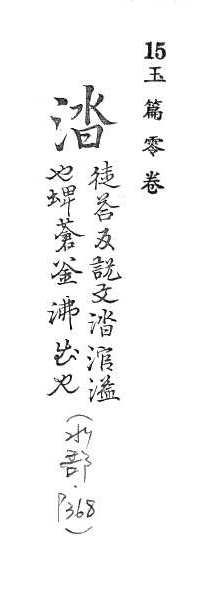 15玉篇零卷
涾
徒荅反説文涾涫溢
也埤蒼釜沸出也
(水部·P368)